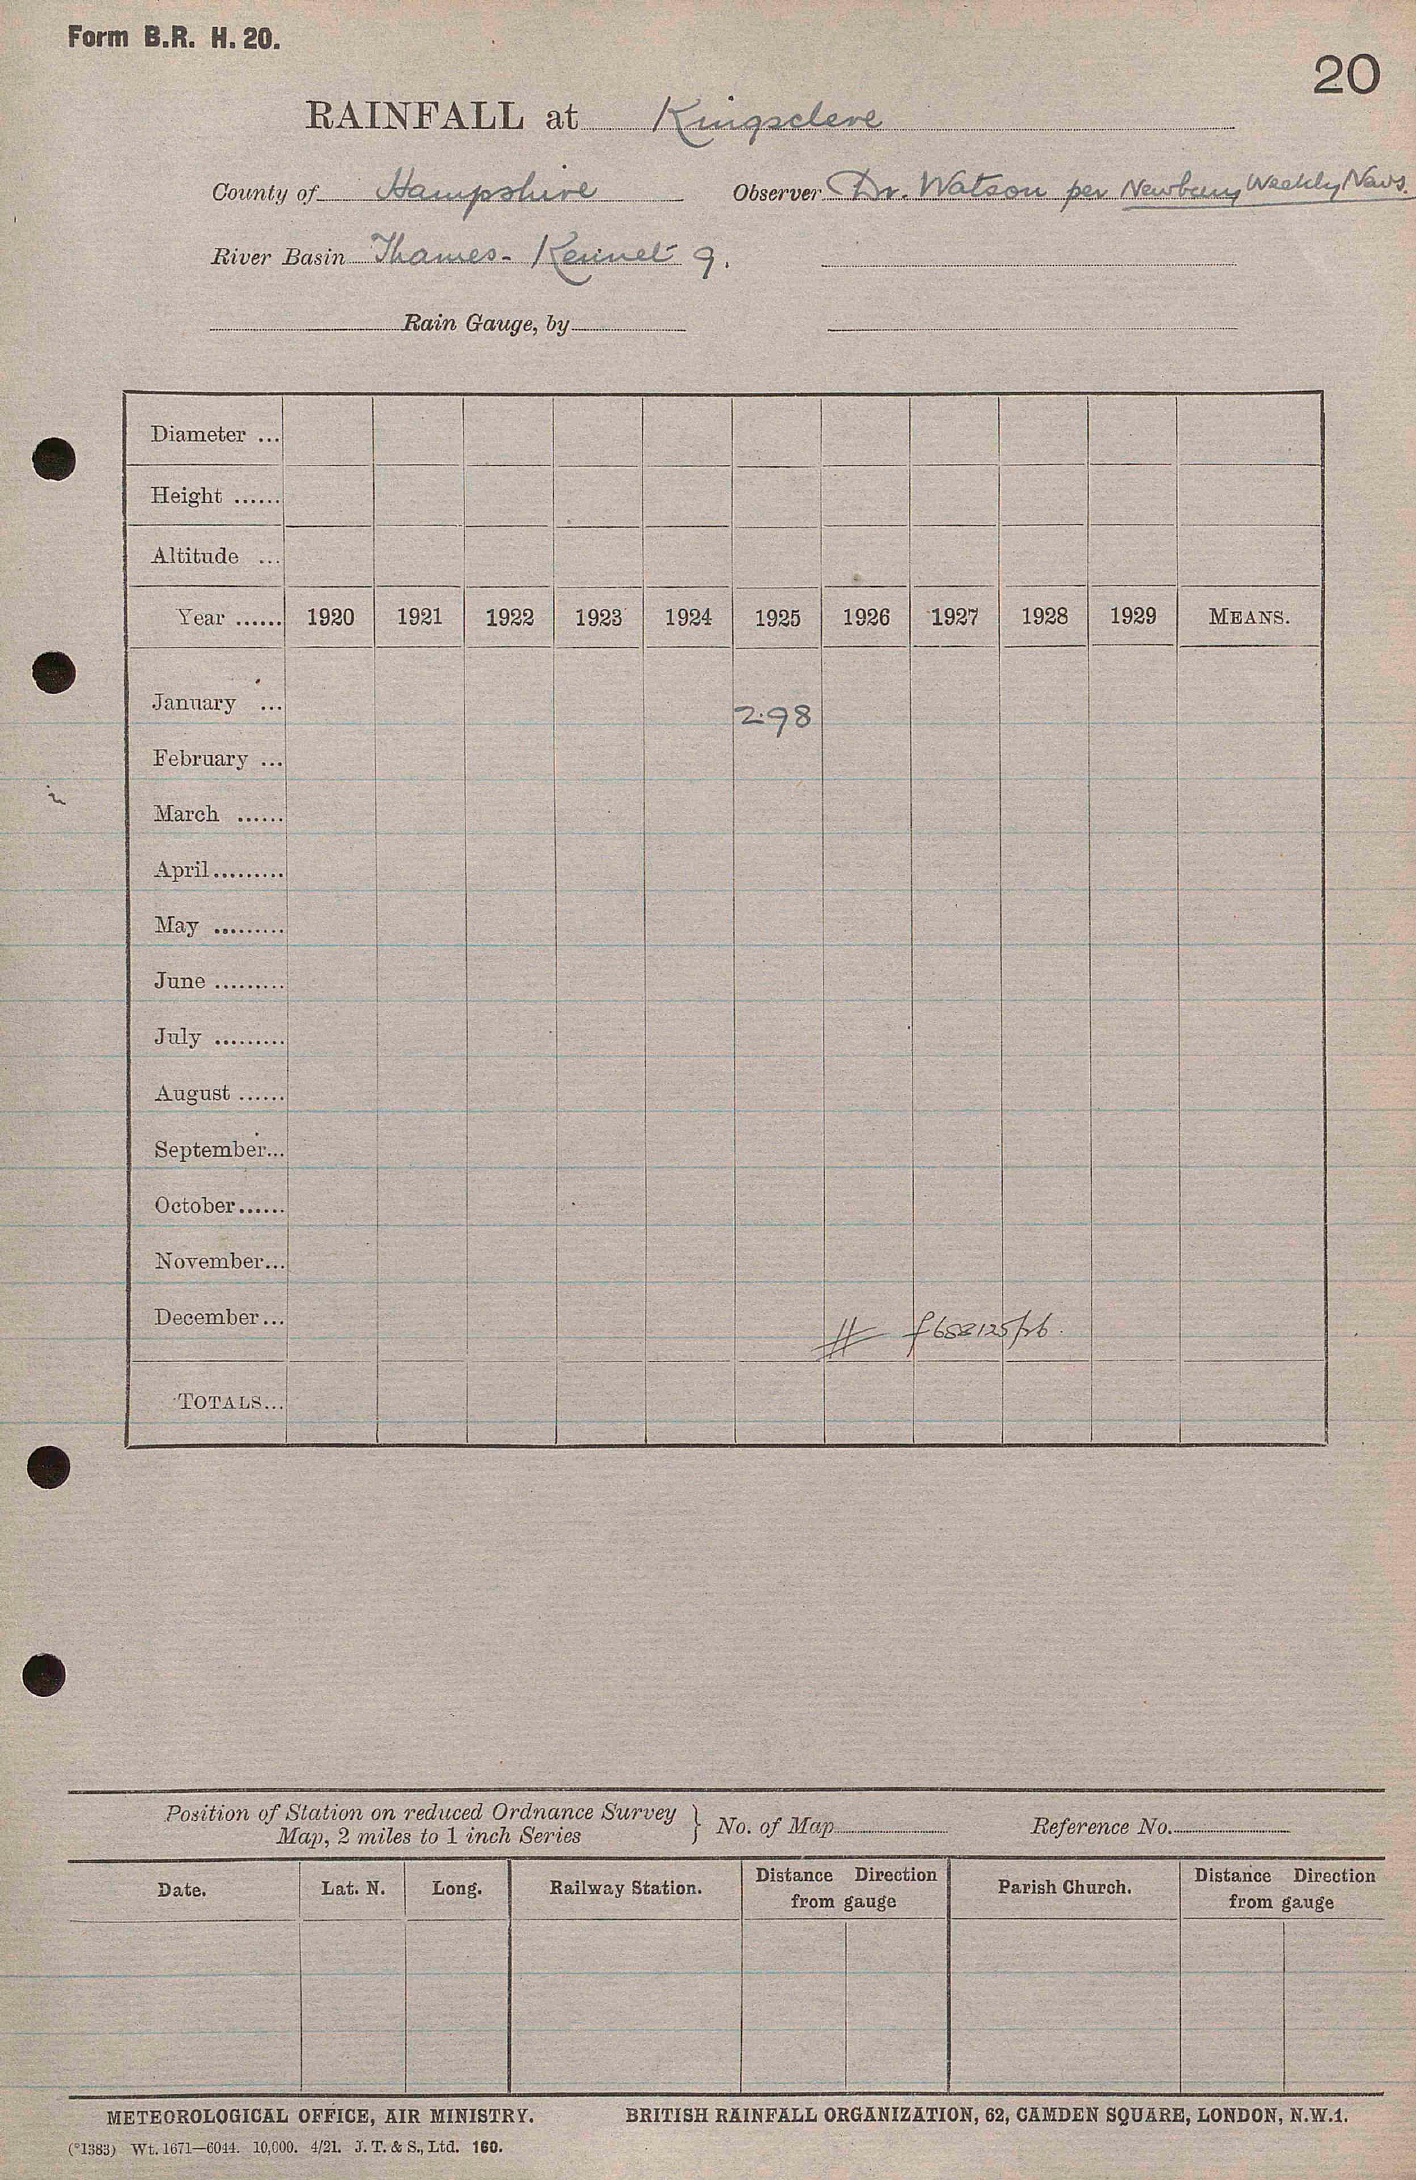 Form B.R. H. 20.
20
RAINFALL at Kingsclere
County of Hampshire Observer Dr. Watson per Newbury Weekly News.
River Basin Thames - Kennet 9.
Rain Gauge, by
Diameter ...
Height ......
Altitude ...
Year ...... 1920 1921 1922 1923 1924 1925 1926 1927 1928 1929 MEANS.
January ... 2.98
February ...
March ......
April.........
May .........
June .........
July .........
August ......
September...
October......
November...
December...
TOTALS...
Position of Station on reduced Ordnance Survey
Map, 2 miles to 1 inch Series } No. of Map Reference No.
Date. Lat. N. Long. Railway Station. Distance Direction from gauge Parish Church. Distance Direction from gauge
METEOROLOGICAL OFFICE, AIR MINISTRY. BRITISH RAINFALL ORGANIZATION, 62, CAMDEN SQUARE, LONDON, N.W.1.
(*1383) Wt. 1671—6044. 10,000. 4/21. J. T. & S., Ltd. 160.